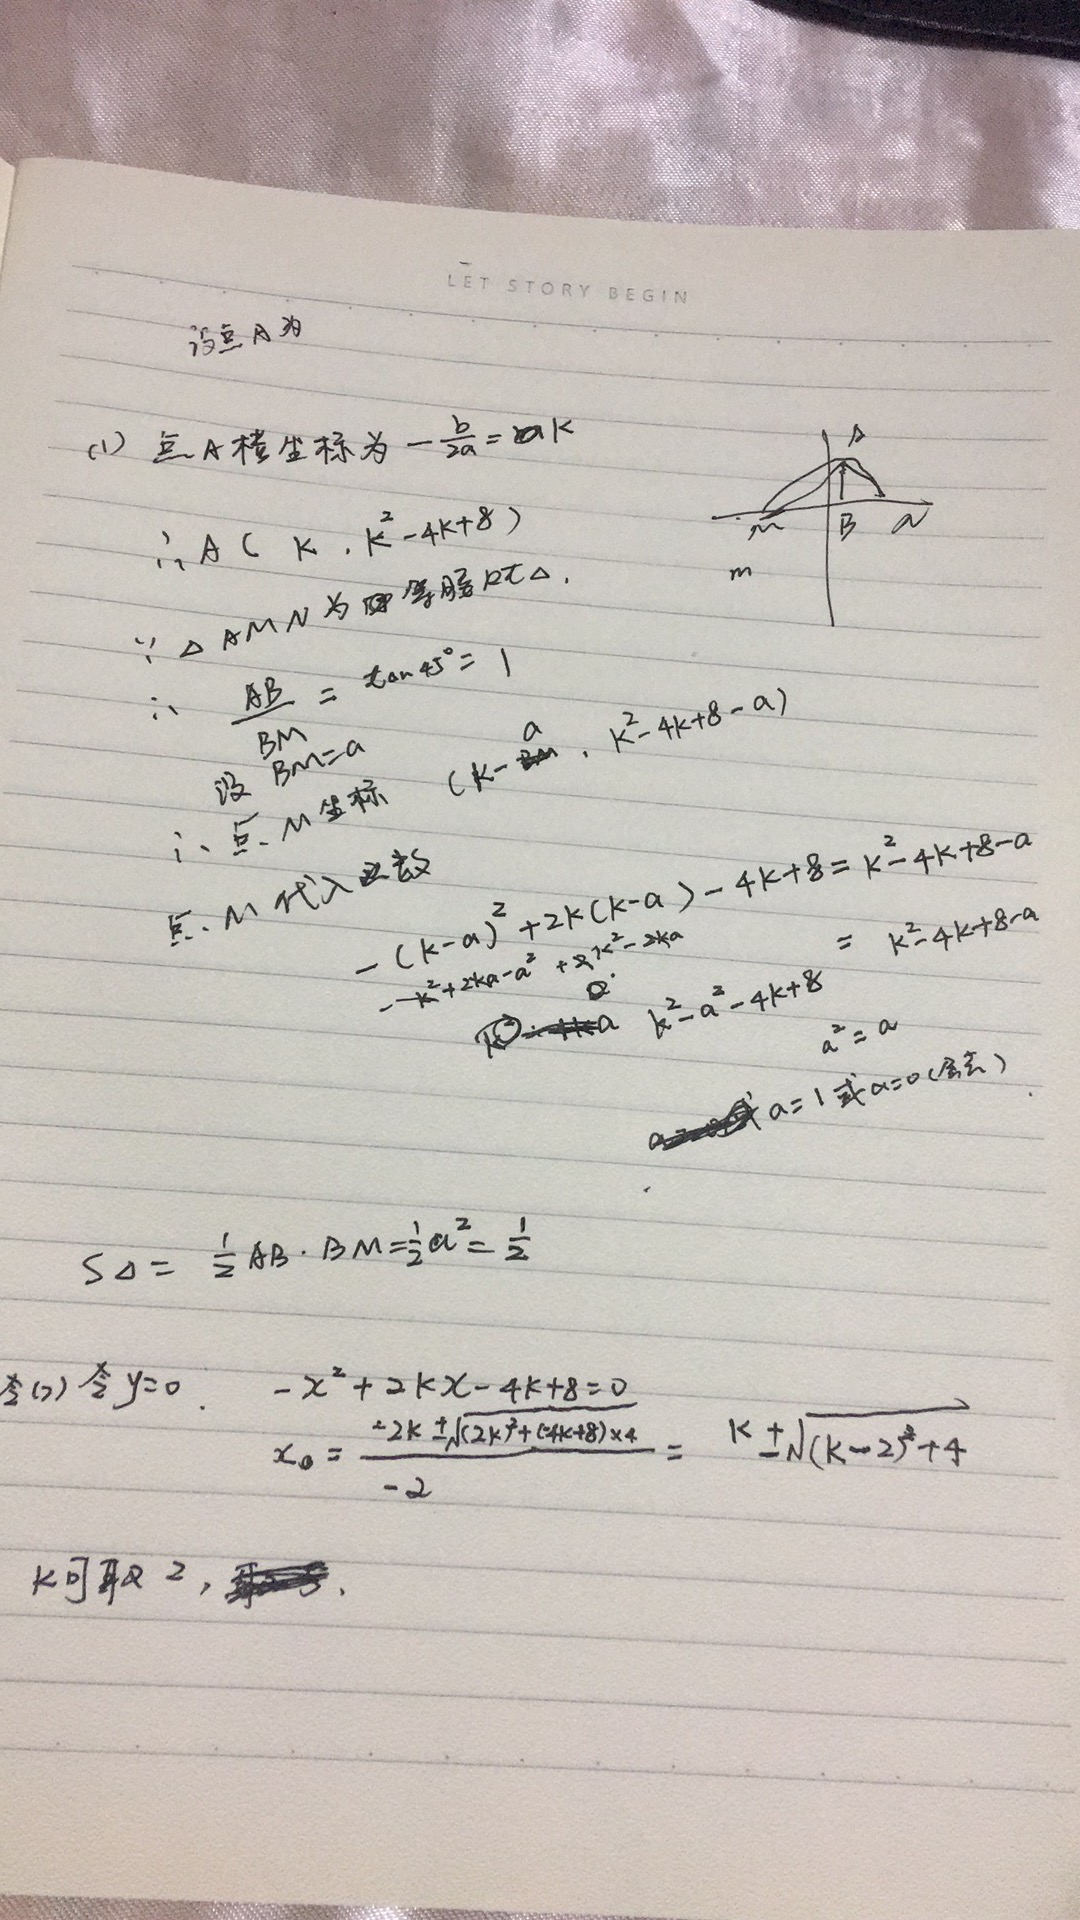 LET STORY BEGIN
设点A为
(1) 点A横坐标为 -b/2a = k
∴ A ( k , k²-4k+8 )
A
M B N
m
∵ △AMN为等腰Rt△.
∴ AB/BM = tan45° = 1
设 BM=a
∴ 点M坐标 (k-a , k²-4k+8-a)
点M代入
-(k-a)²+2k(k-a)-4k+8=k²-4k+8-a
-k²+2ka-a²+2k²-2ka = k²-4k+8-a
k²-a²-4k+8
a²=a
a=1或a=0(舍去)
S△= 1/2 AB·BM=1/2 a²=1/2
(2) 令y=0. -x²+2kx-4k+8=0
x₀ = (-2k±√((2k)²+(-4k+8)×4))/-2 = k±√((k-2)²+4)
k可取2,